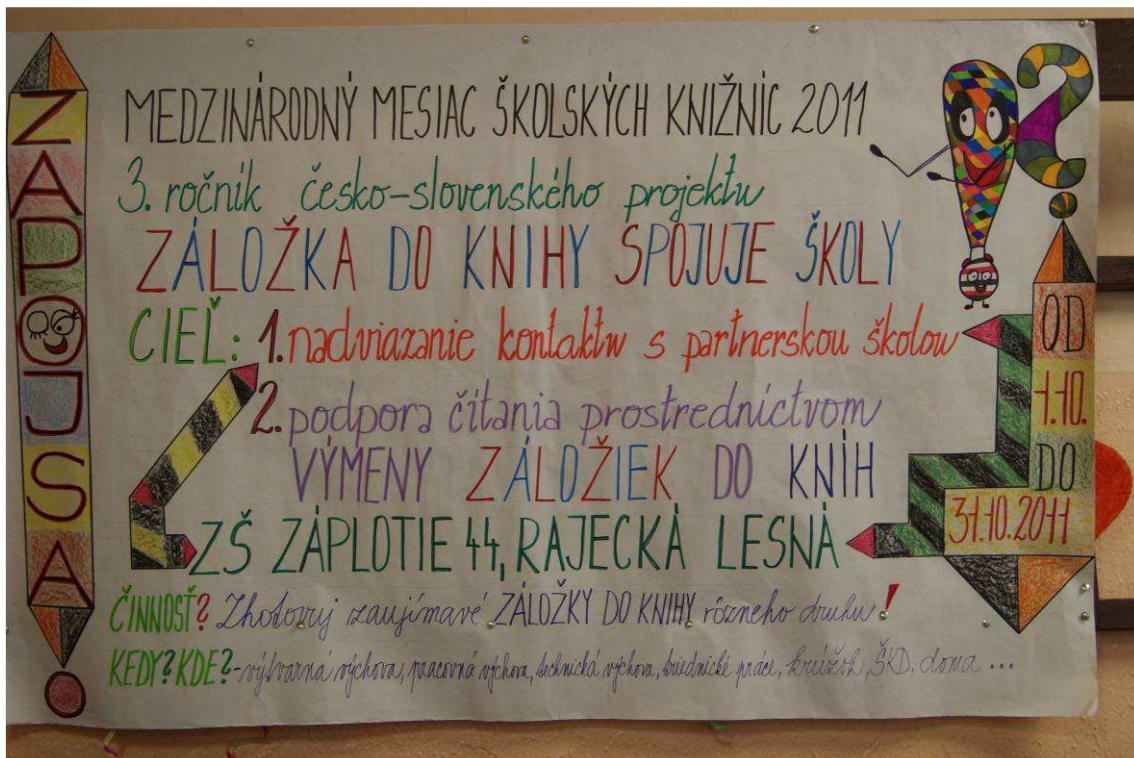 ZAPOJ SA!
MEDZINÁRODNÝ MESIAC ŠKOLSKÝCH KNIŽNÍC 2011
3. ročník česko-slovenského projektu
ZÁLOŽKA DO KNIHY SPOJUJE ŠKOLY
CIEĽ: 1. nadviazanie kontaktu s partnerskou školou
2. podpora čítania prostredníctvom
VÝMENY ZÁLOŽIEK DO KNÍH
ZŠ ZÁPLOTIE 44, RAJECKÁ LESNÁ
ČINNOSŤ? Zhotovuj zaujímavé ZÁLOŽKY DO KNIHY rôzneho druhu!
KEDY? KDE? - výtvarná výchova, pracovná výchova, technická výchova, triednické práce, krúžok, ŠKD, doma ...
OD
1.10.
DO
31.10.2011